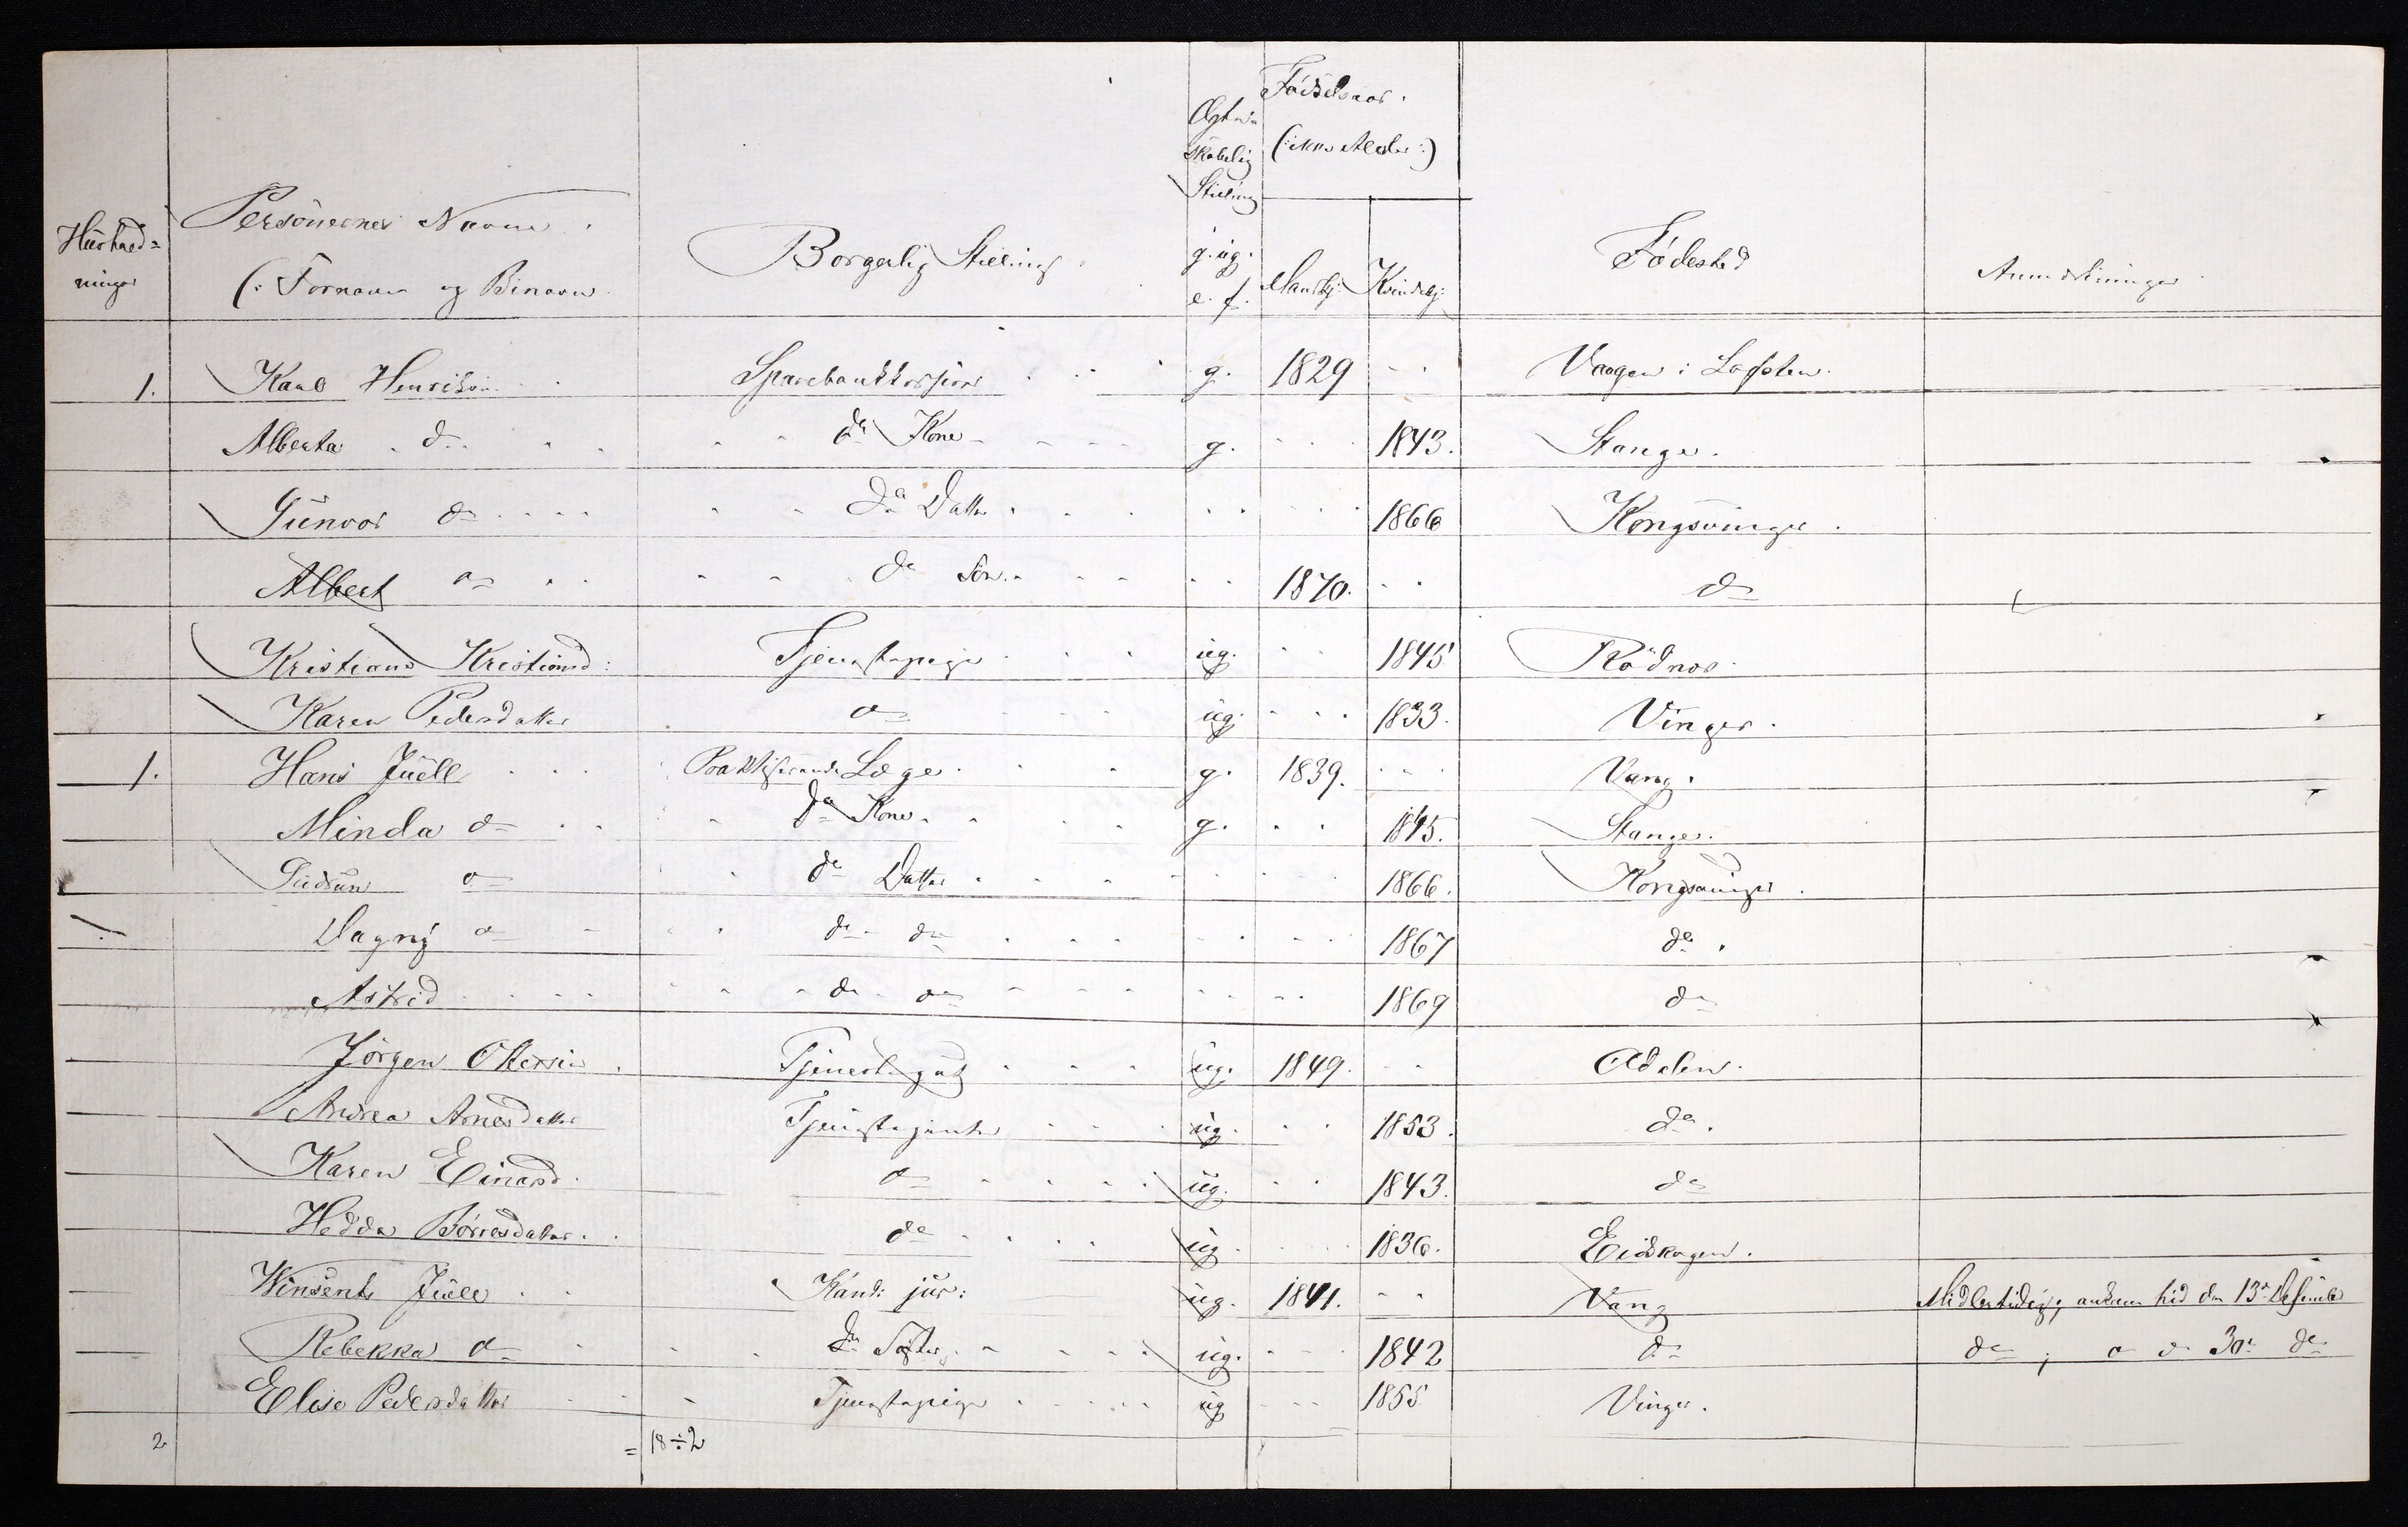 Fødselsaar.
Ægte-
skabelig (: ikke Alder :)
Stilling
Personernes Navne.
Hushold=
ninger
Borgerlig Stilling.
g. ug.
Fødested
(: Fornavn og Binavn.
e. f. Mandkj: Kvindekj:
Anmerkninger
1. Karl Henriksen Sparebankkasserer g. 1829 Vaagen i Lofoten.
Alberta do ds Kone g. 1843. Stange.
Gunvor do ds Datter 1866 Kongsvinger.
Albert do ds Søn 1870. do
Kristiane Kristiansd: Tjenestepige ug. 1845 Rødnes
Karen Pedersdatter do ug. 1833. Vinger.
1. Hans Juell Praktiserende Læge g. 1839. Vang.
Minda do ds Kone g. 1845. Stange.
Gudrun do ds Datter 1866. Kongsvinger.
Dagny do ds do 1867 do.
Astrid ds do 1869 do
Jörgen Tjenestegut ug. 1849. Odalen.
Andrea Arnesdatter Tjenestejente ug. 1853. do.
Karen Einersd. do ug. 1843. do
Hedda Börresdatter. do ug. 1836. Eidskogen.
Winsents Juell Kand: jur: ug. 1841. Vang Midlertidig, ankom hid den 13de Desember
Rebekka do ds Søster ug. 1842 do do ; do do 30te do
Elise Pedersdatter Tjenestepige ug 1855 Vinger.
2 = 18 ÷ 2